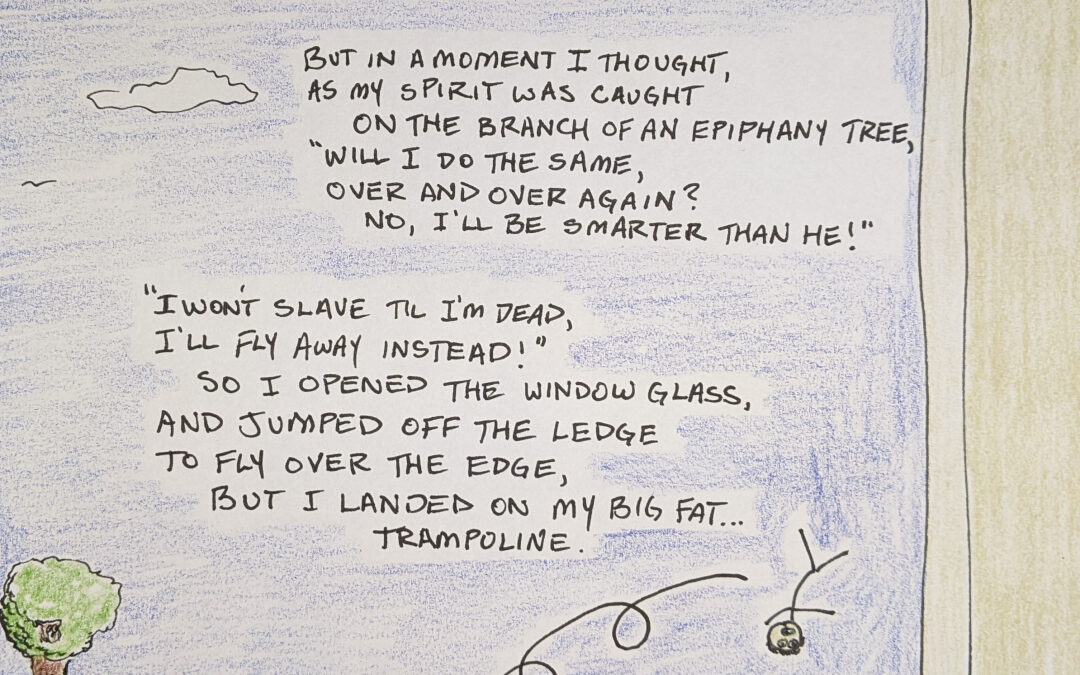 BUT IN A MOMENT I THOUGHT,
AS MY SPIRIT WAS CAUGHT
ON THE BRANCH OF AN EPIPHANY TREE,
"WILL I DO THE SAME,
OVER AND OVER AGAIN?
NO, I'LL BE SMARTER THAN HE!"
"I WON'T SLAVE TIL I'M DEAD,
I'LL FLY AWAY INSTEAD!"
SO I OPENED THE WINDOW GLASS,
AND JUMPED OFF THE LEDGE
TO FLY OVER THE EDGE,
BUT I LANDED ON MY BIG FAT...
TRAMPOLINE.